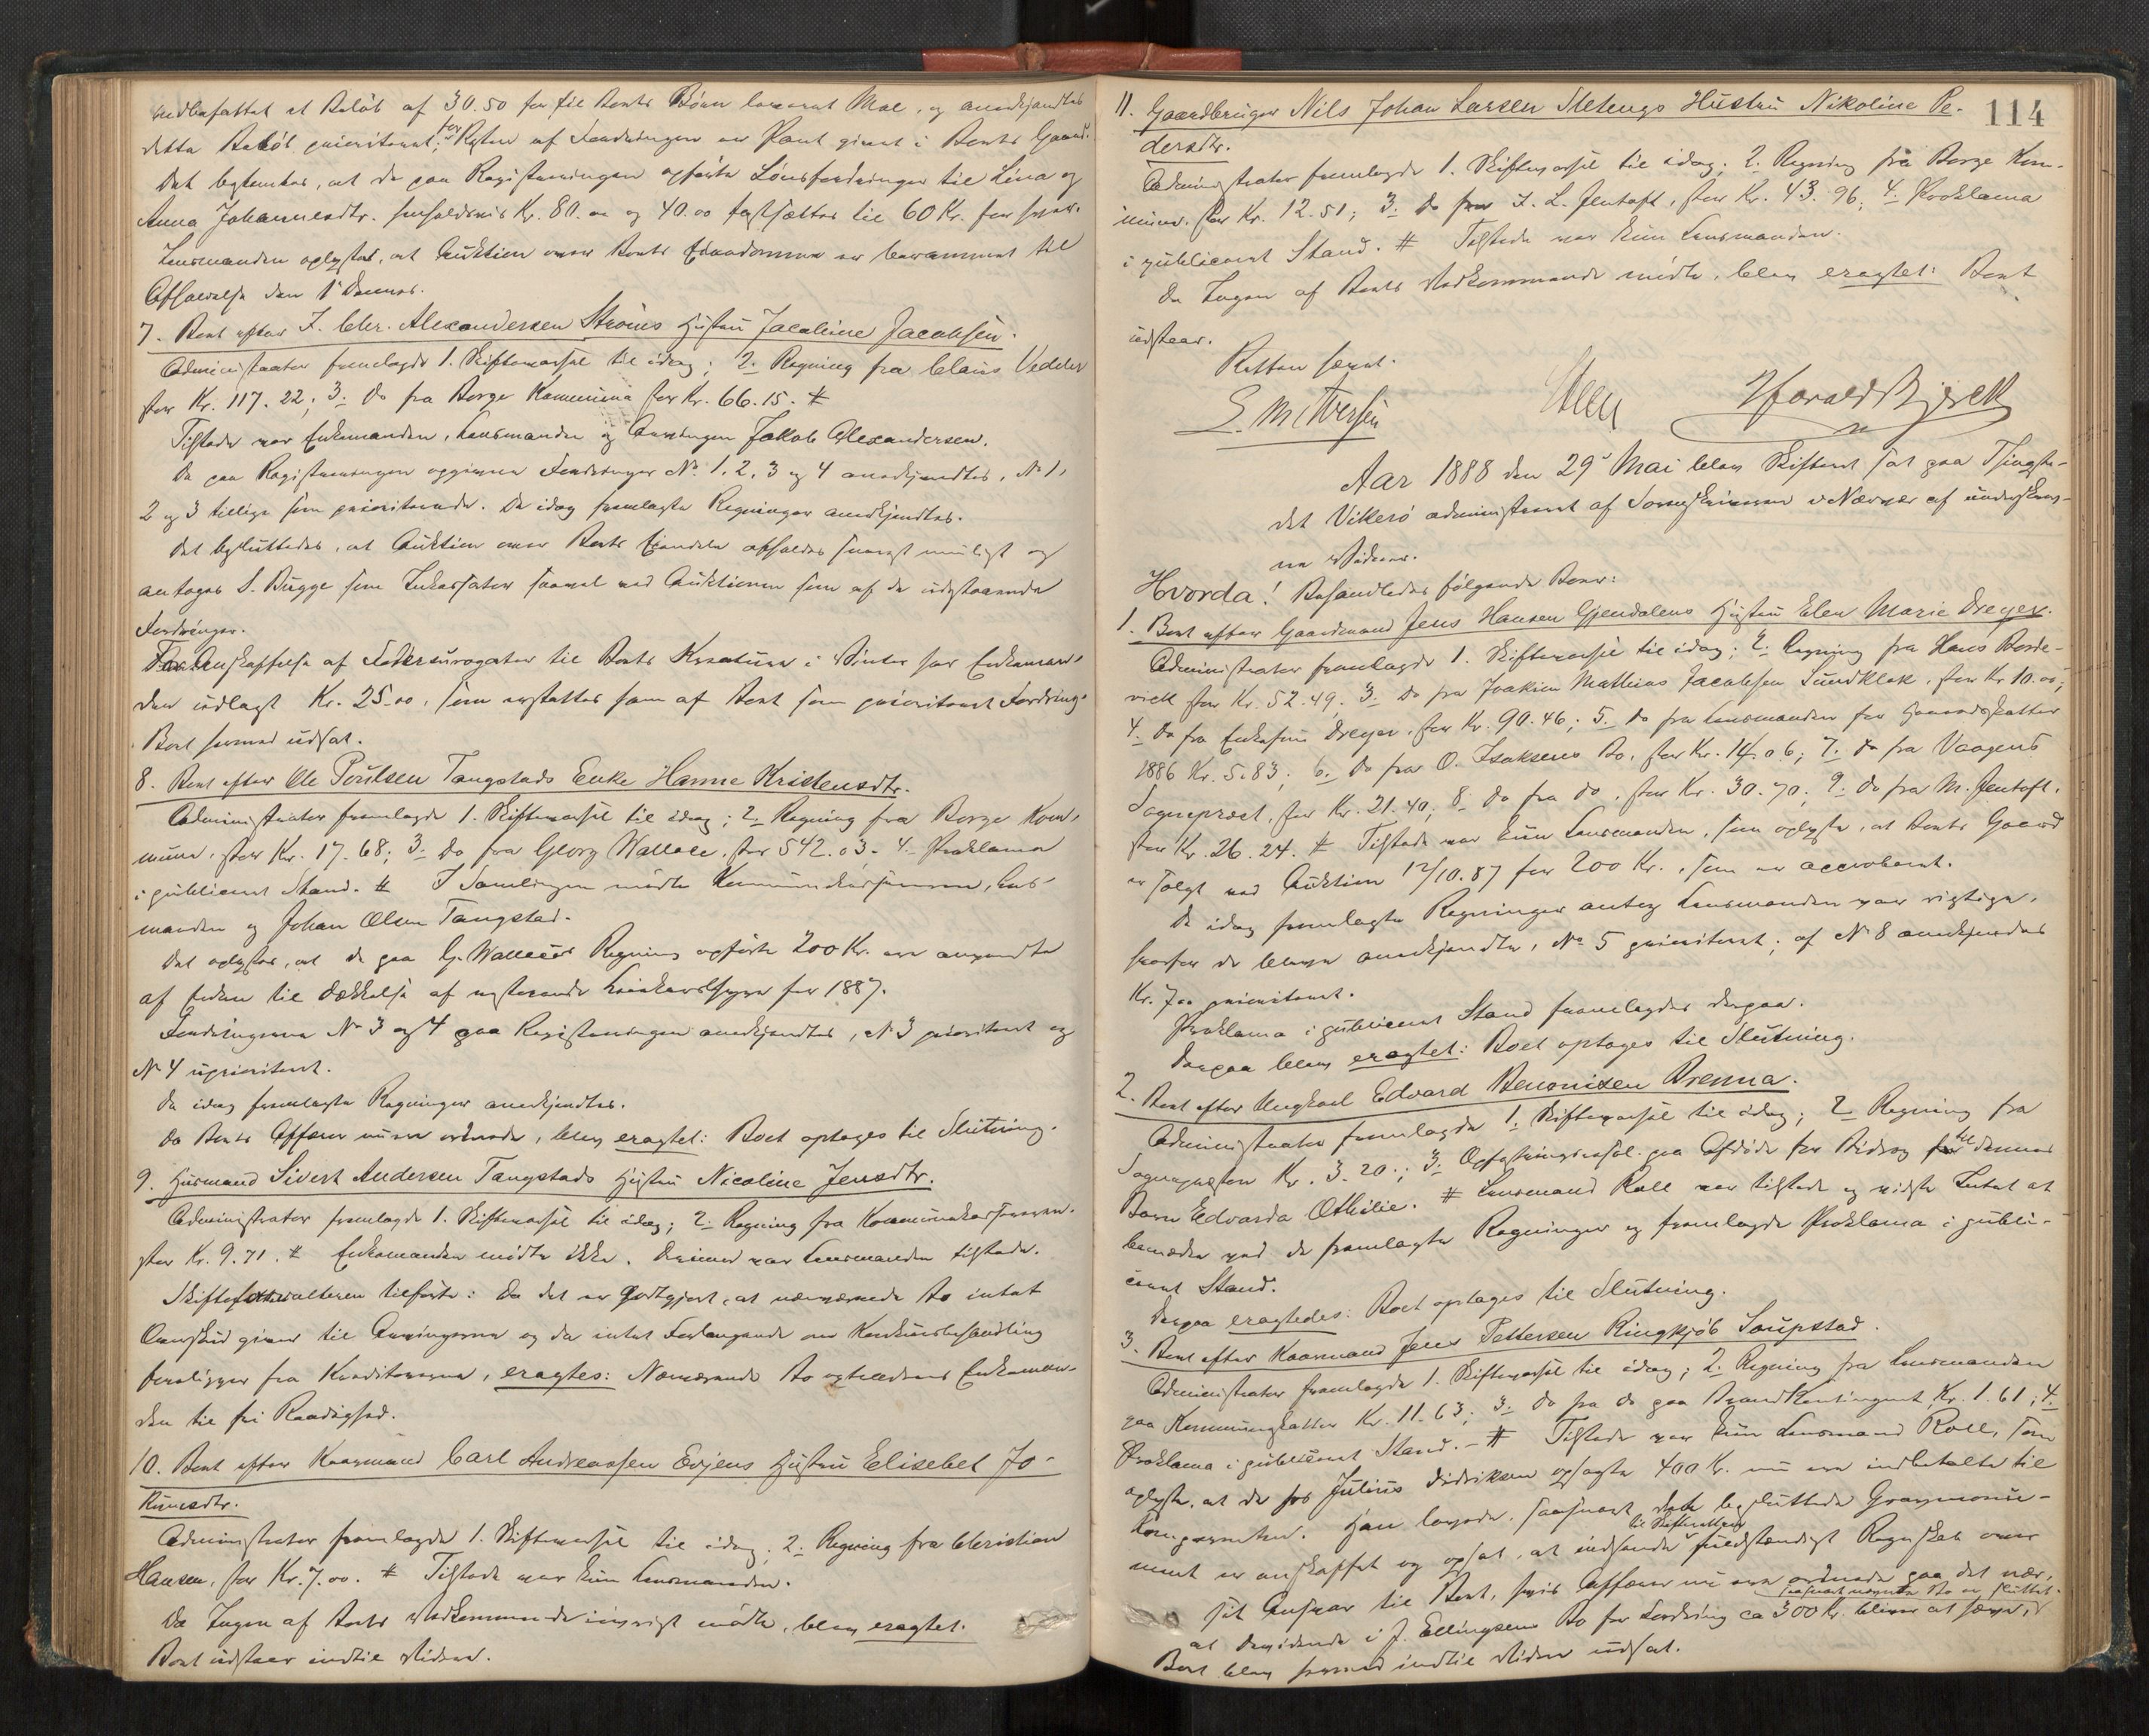 indbefattet et Beløb af 30.50 for til Boets Børn leveret Mæl, og anerkjendtes
dette Beløb prioriteret; for Resten af Fordringen er Pant givet i Boets Gaard.
Det bestemtes, at de paa Registreringen opførte Lønsfordringer til Lina og
Anna Johannesdtr. henholdsvis Kr. 80.00 og 40.00 fastsættes til 60 Kr. for hver.
Lensmanden oplyste, at Auktion over Boets Eiendomme er berammet til
Afholdelse den 1ste
7. Boet efter J. Chr. Alexandersen Strøms Hustru Jacobine Jacobsen.
Administrator fremlagde 1. Skiftevarsel til idag; 2. Regning fra Claus Vedeler
stor Kr. 117.22; 3. do fra Borge Kommune stor Kr. 66.15. #
Tilstede var Enkemanden, Lensmanden og Arvingen Jakob Alexandersen.
De paa Registreringen opgivne Fordringer No 1, 2, 3 og 4 anerkjendtes, No 1,
2 og 3 tillige som prioriterede. De idag fremlagte Regninger anerkjendtes.
Det besluttedes, at Auktion over Boets Eiendele afholdes snarest muligt og
antoges S. Bugge som Inkassator saavel ved Auktionen som af de udestaaende
Fordringer.
For Anskaffelse af Fodersurogater til Boets Kreaturer i Vinter har Enkeman-
den udlagt Kr. 25.00, som erstattes ham af Boet som prioriteret Fordring.
Boet hermed udsat.
8. Boet efter Ole Poulsen Tangstads Enke Hanne Kristensdtr.
Administrator fremlagde 1. Skiftevarsel til idag; 2. Regning fra Borge Kom-
mune, stor Kr. 17.68; 3. do fra Georg Wallace, stor 542.03. 4. Proklama
i publiceret Stand. # I Samlingen mødte Kommunekassereren, Lens-
manden og Johan Olsen Tangstad.
Det oplystes, at de paa G. Wallaces Regning opførte 200 Kr. ere anvendte
af Enken til Dækkelse af resterende for 1887.
Fordringerne No 3 og 4 paa Registreringen anerkjendtes, No 3 prioriteret og
No 4 uprioriteret.
De idag fremlagte Regninger anerkjendtes.
Da Boets Affærer nu ere ordnede, blev eragtet: Boet optages til Slutning.
9. Husmand Sivert Andersen Tangstads Hustru Nicoline Jensdtr.
Administrator fremlagde 1. Skiftevarsel til idag; 2. Regning fra Kommunekassereren.
stor Kr. 9.71. # Enkemanden mødte ikke. Derimod var Lensmanden tilstede.
Skifteforvalteren tilførte: Da det er godtgjort, at nærværende Bo intet
Overskud giver til Arvingerne og da intet Forlangende om Konkursbehandling
foreligger fra Kreditorerne, eragtes: Nærværende Bo extraderes Enkeman-
den til fri Raadighed.
10. Boet efter Kaarmand Carl Andreassen Evjens Hustru Elisebet Jo-
kumsdtr.
Administrator fremlagde 1. Skiftevarsel til idag; 2. Regning fra Christian
Hansen, stor Kr. 7.00. # Tilstede var kun Lensmanden.
Da Ingen af Boets Vedkommende iøvrigt mødte, blev eragtet.
Boet udstaar indtil Videre.
114
11. Gaardbruger Nils Johan Larsen Stetengs Hustru Nikoline Pe-
dersdtr.
Administrator fremlagde 1. Skiftevarsel til idag; 2. Regning fra Borge Kom-
mune. stor Kr. 12.51; 3. do fra J. L. Jentoft, stor Kr. 43.96; 4. Proklama
i publiceret Stand. # Tilstede var kun Lensmanden.
Da Ingen af Boets Vedkommende mødte, blev eragtet: Boet
udstaar.
Retten hævet.
E. M. Iversen Harald Bjerch
Aar 1888 den 29de Mai blev Skifteret sat paa Thingste-
det Vikerø administreret af Sorenskriveren v Nærvær af underskrev-
ne Vidner.
Hvorda! Behandledes følgende Boer:
1. Boet efter Gaardmand Jens Hansen Gjendalens Hustru Elen Marie Dreyer.
Administrator fremlagde 1. Skiftevarsel til idag; 2. Regning fra Hans Borde-
vick stor Kr. 52.49. 3. do fra Joakim Mathias Jacobsen Sundklak, stor Kr 10.00;
4. do fra Enkefru Dreyer, stor Kr. 90.46; 5. do fra Lensmanden for Herredsskatter
1886 Kr. 5.83; 6. do fra O. Isaksens Bo, stor Kr. 14.06; 7. do fra Vaagens
Sogneprest, stor Kr. 21.40; 8. do fra do. stor Kr. 30.70; 9. do fra M. Jentoft,
stor Kr. 26.24. # Tilstede var kun Lensmanden, som oplyste, at Boets Gaard
er solgt ved Auktion 12/10.87 for 200 Kr., som er approberet.
De idag fremlagte Regninger antog Lensmanden var rigtige,
hvorfor de bleve anerkjendte, No 5 prioriteret; af No 8 anerkjendes
Kr. 7.00 prioriteret.
Proklama i publiceret Stand fremlagdes derpaa.
Derpaa blev eragtet: Boet optages til Slutning.
2. Boet efter Ungkarl Edvard Benonisen Brenna.
Administrator fremlagde 1. Skiftevarsel til idag; 2. Regning fra
Sognepresten Kr. 3.20.; 3. paa Afdøde for Bidrag til dennes
Barn Edvarda Othilie. # Lensmand Roll var tilstede og vidste Intet at
bemærke ved de fremlagte Regninger og fremlagde Proklama i publi-
ceret Stand.
Derpaa eragtedes: Boet optages til Slutning.
3. Boet efter Kaarmand Jens Pettersen Ringkjøb Saupstad.
Administrator fremlagde 1. Skiftevarsel til idag; 2. Regning fra Lensmanden
paa Kommuneskatter Kr. 11.63; 3. do fra do paa Brandkontingent Kr. 1.61; 4.
Proklama i publiceret Stand. - # Tilstede var kun Lensmand Roll, som
oplyste, at de hos Julius Didriksen opsagte 400 Kr. nu ere indbetalte til
Komparenten. Han lovede, saasnart det besluttede Gravmonu-
ment er anskaffet og opsat, at indsende til Skifteretten fuldstændigt Regnskab over
sit Ansvar til Boet, hvis Affærer nu ere ordnede paa det nær,
at Dividende i J. Ellingsens Bo for Fordring ca 300 Kr. bliver at hæve, saasnart nævnte Bo er sluttet.
Boet blev hermed indtil Videre udsat.